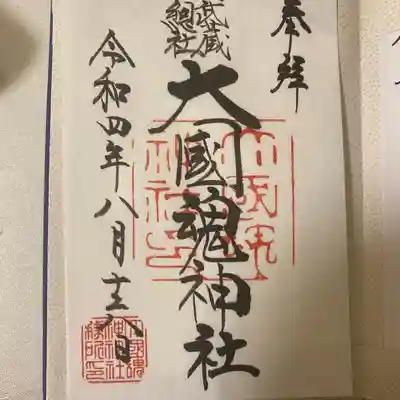 奉拜
武蔵
總社
大國魂神社
令和四年八月十六日